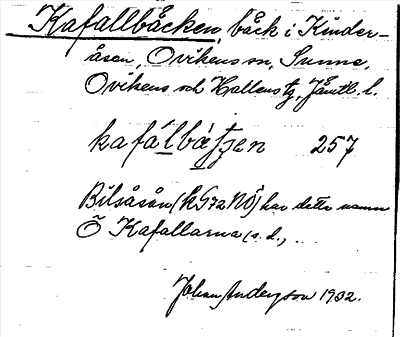 Kafallbäcken, bäck i Kinder-
åsen, Ovikens sn, Sunne,
Ovikens och Hallens tg, Jämtl. l.
kafálbátʃen 257
Bilsåsån (kG72NÖ) har detta namn
Ö Kafallarna (s.d.) ..
Johan Anderzson 1932.